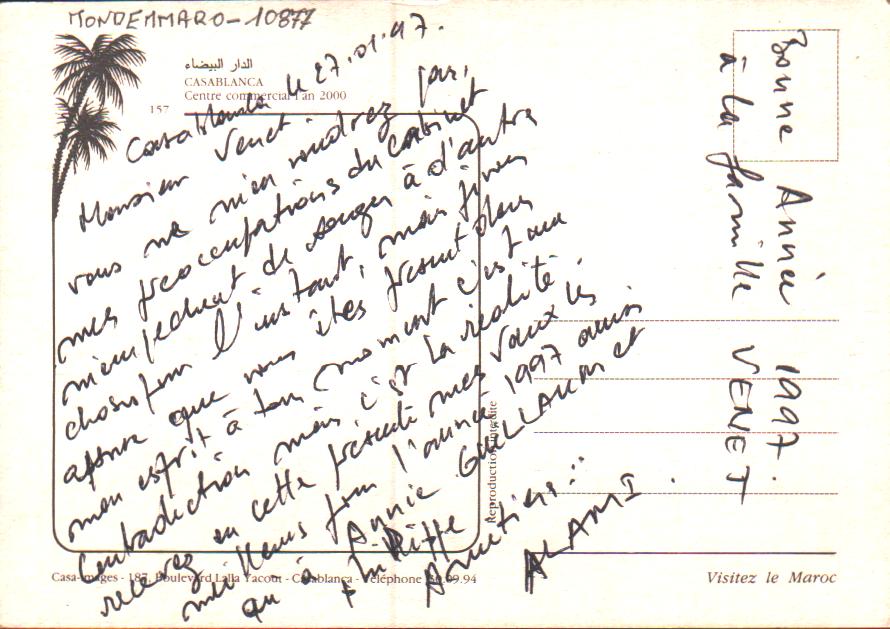 MONDEMMARO-10877
الدار البيضاء
CASABLANCA
Centre commercial l'an 2000
157
Casablanca le 27.01.97.
Monsieur Venet.
vous ne m'en voudrez pas,
mes préoccupations du cabinet
m'empêchent de songer à d'autre
chose pour l'instant, mais soyez
assuré que vous êtes présent dans
mon esprit à tout moment c'est une
contradiction mais c'est la réalité.
recevez en cette présente mes vœux les
meilleurs pour l'année 1997 ainsi
qu'à Annie GUILLAUM et
Philippe
Amitiés...
ALAMI.
Bonne Année 1997.
à la famille VENET
Reproduction interdite
Casa-Images - 187, Boulevard Lalla Yacout - Casablanca - Téléphone .09.94
Visitez le Maroc